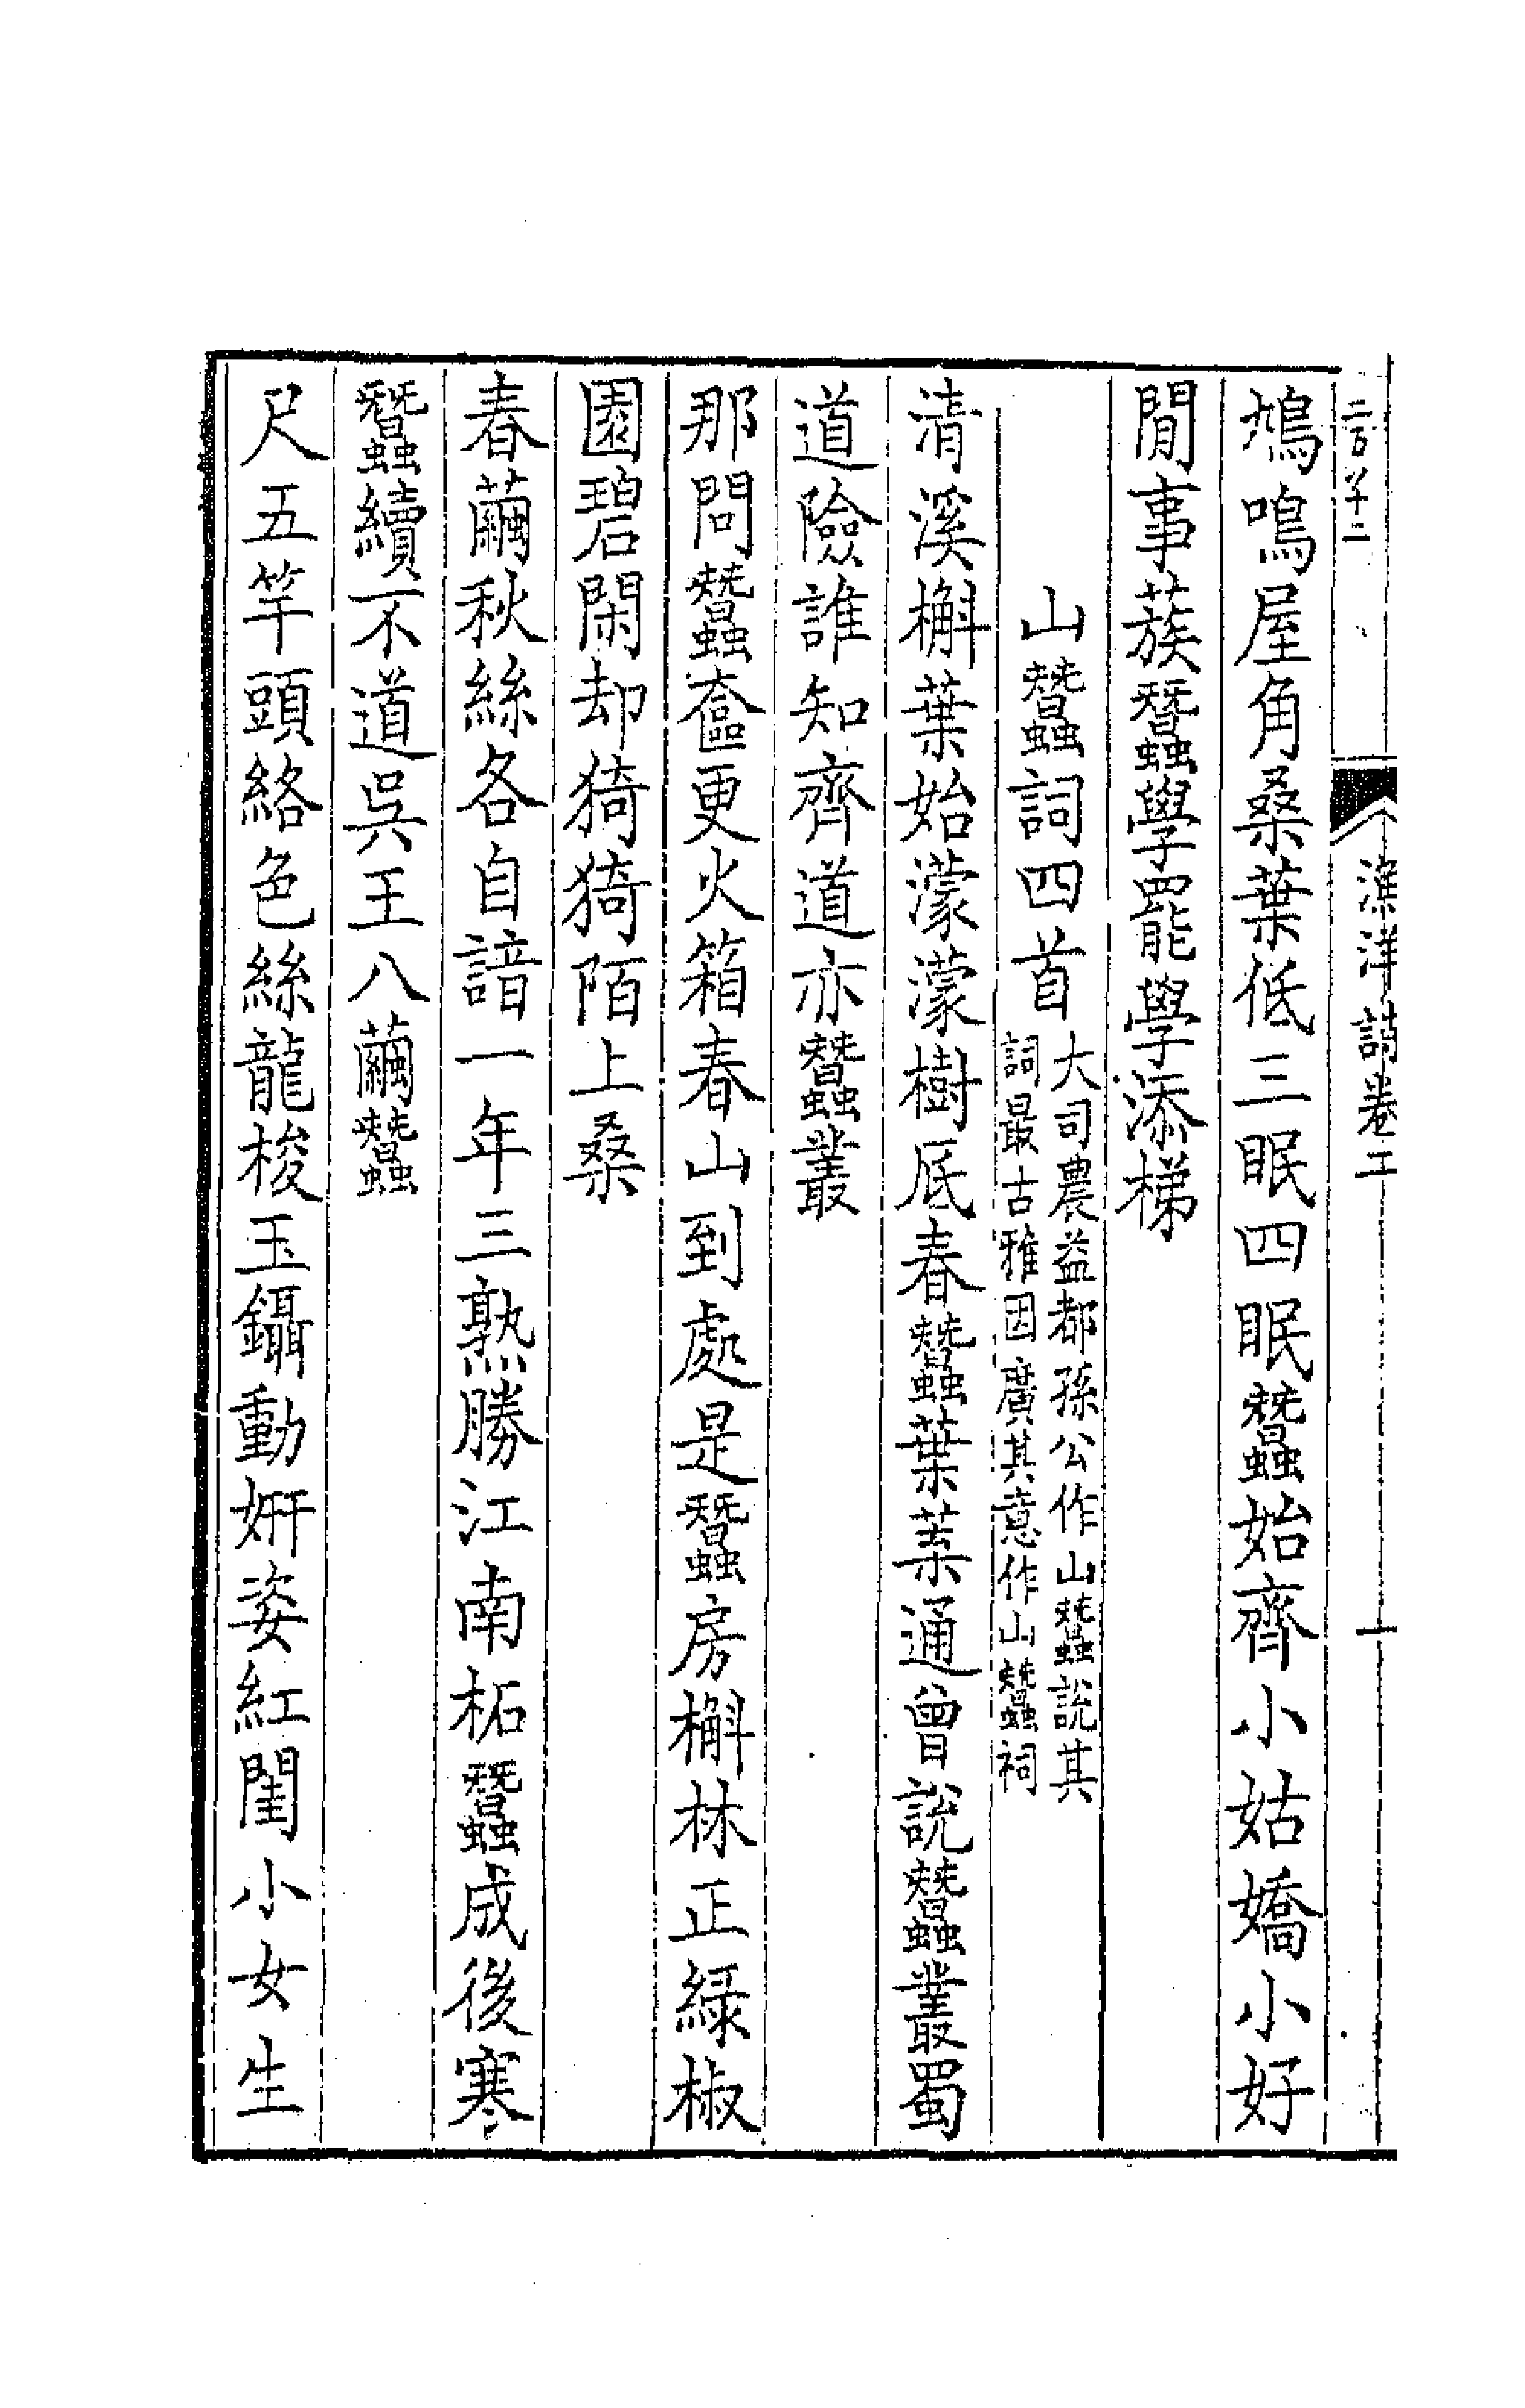 漁洋詩卷二
鳩鳴屋角桑葉低三眠四眠蠶始齊小姑嬌小好
閒事蔟蠶學罷學添梯
山蠶詞四首
大司農益都孫公作山蠶說其
詞最古雅因廣其意作山蠶祠
清溪槲葉始濛濛樹底春蠶葉葉通曾說蠶叢蜀
道險誰知齊道亦蠶叢
那問蠶奩更火箱春山到處是蠶房槲林正綠椒
園碧閑却猗猗陌上桑
春繭秋絲各自諳一年三熟勝江南柘蠶成後寒
蠶續不道吳王八繭蠶
尺五竿頭絡色絲龍梭玉鑷動姸姿紅閨小女生